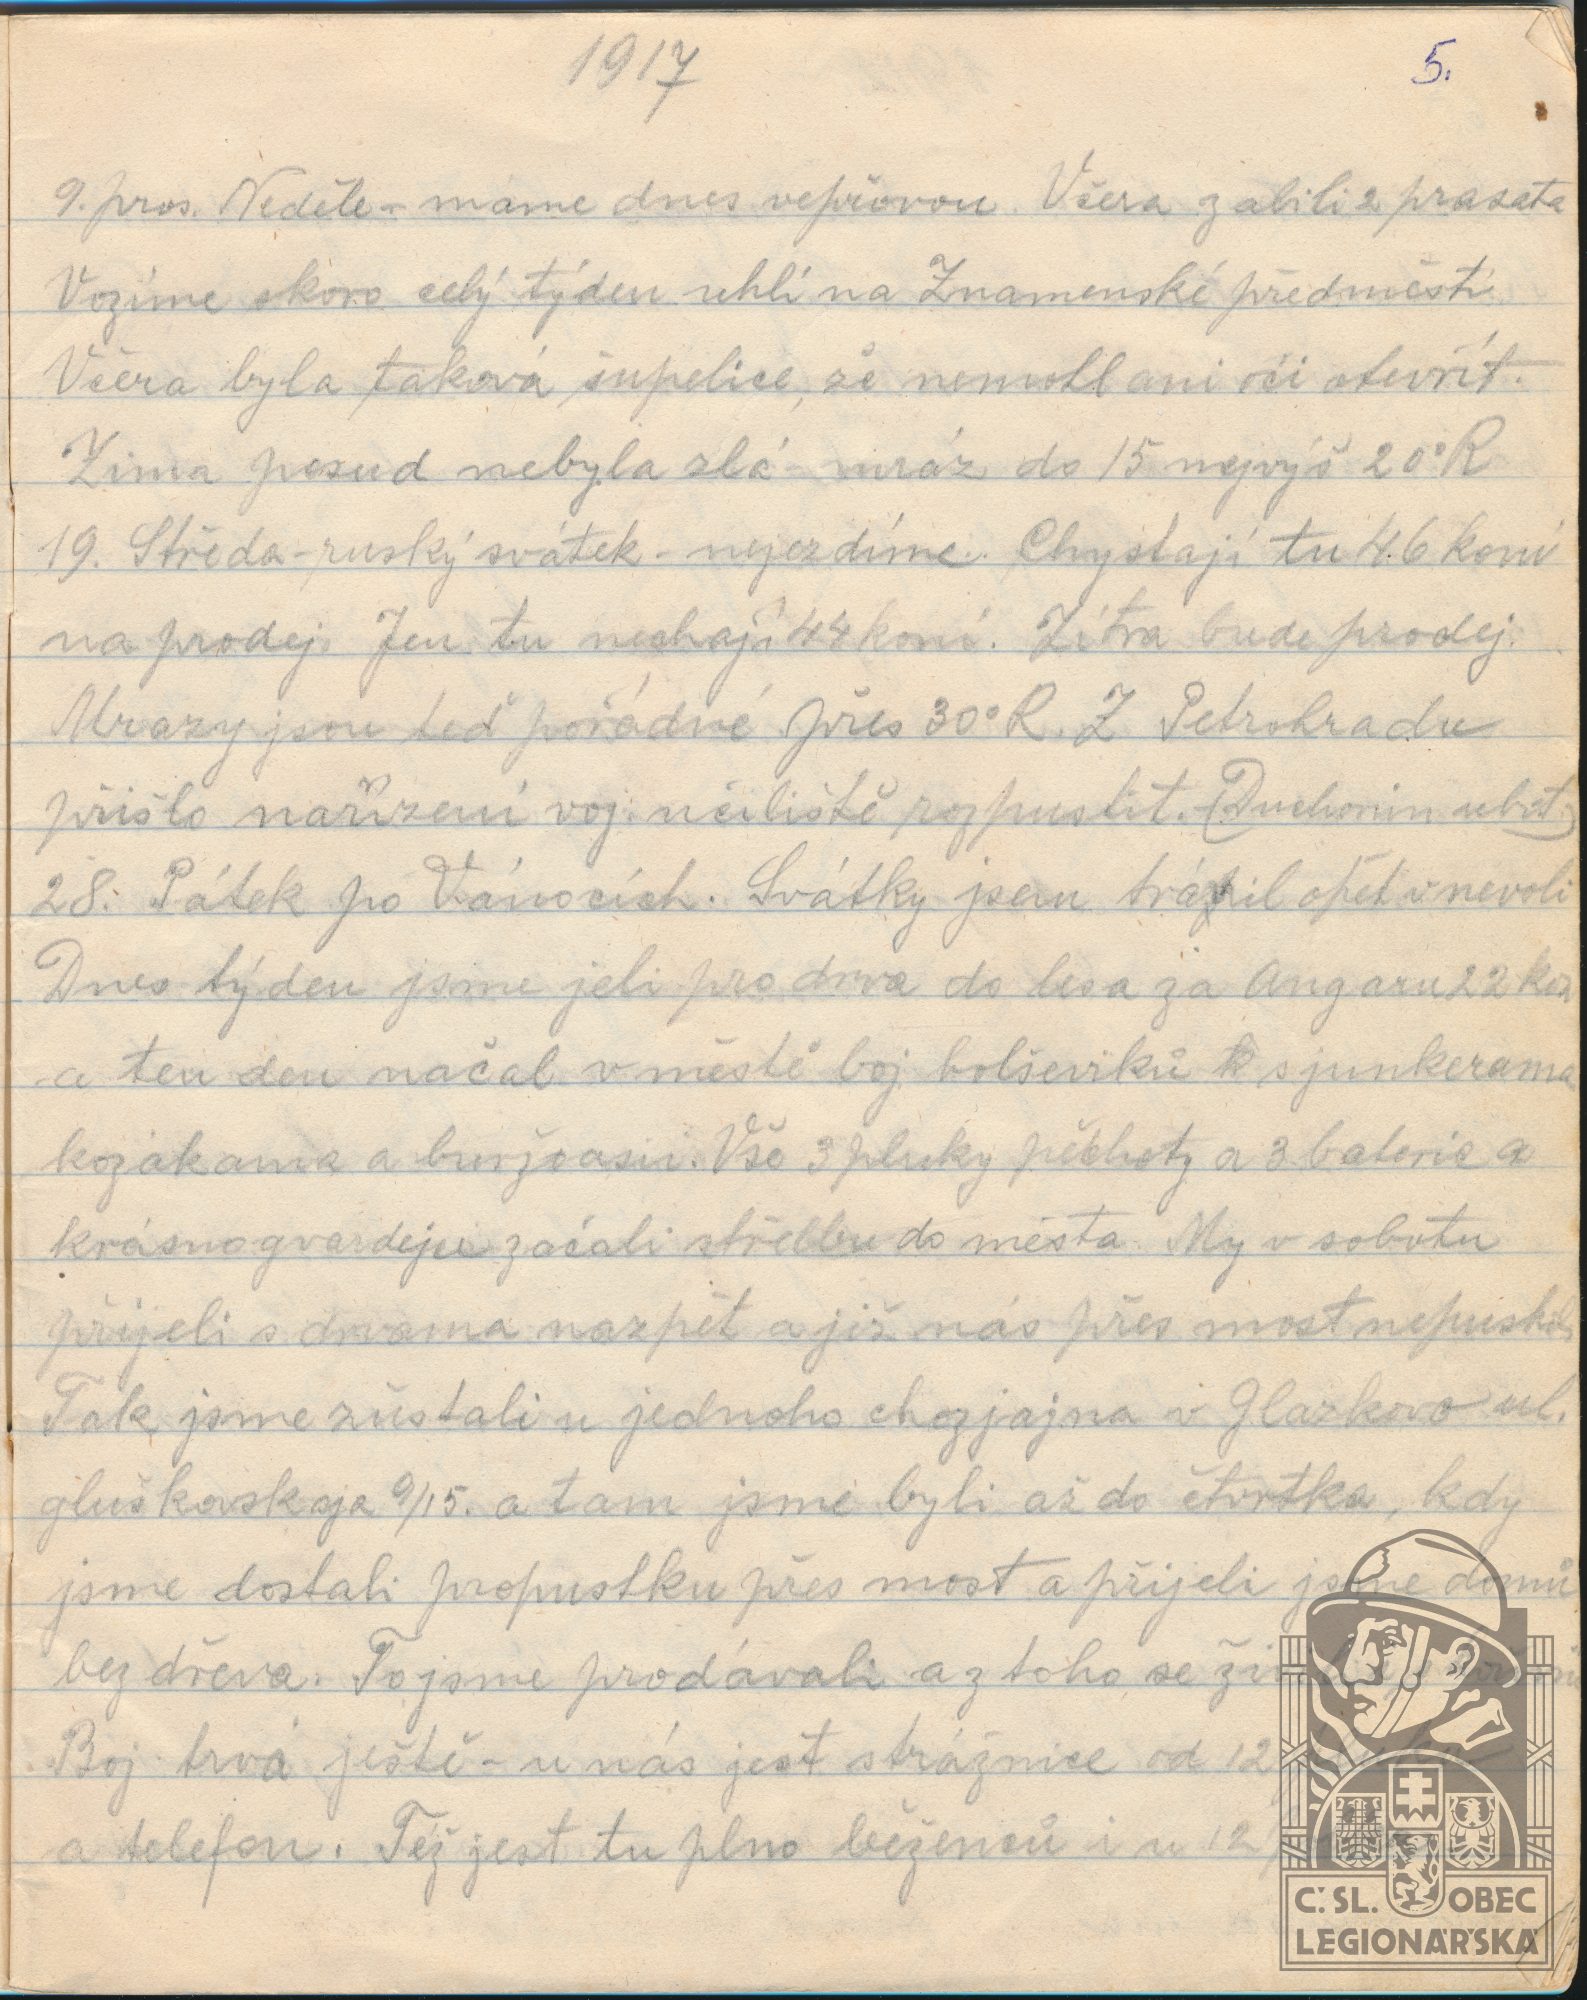 1917
5.
9. pros. Neděle - máme dnes vepřovou. Včera zabili 2 prasata
Vozíme skoro celý týden uhlí na Znamenské předměstí
Včera byla taková čupelice, že nemohl ani oči otevřít.
Zima posud nebyla zlá - mráz do 15 nejvýš 20°R
19. Středa - ruský svátek - nejezdíme. Chystají tu 46 koní
na prodej. Jen tu nechají 44 koní. Zítra bude prodej.
Mrazy jsou teď pořádné přes 30°R. Z Petrohradu
přišlo nařízení voj. učiliště rozpustit. - (Duchonin ubit)
28. Pátek po Vánocích. Svátky jsem trávil opět v nevoli
Dnes týden jsme jeli pro drva do lesa za Angaru 22 koň
a ten den načal v městě boj bolševiků s junkerama
kozákama a buržoasií. Vše 3 pluky pěchoty a 3 baterie a
krásnogvardejci začali střelbu do města. My v sobotu
přijeli s drvama nazpět a již nás přes most nepustili
Tak jsme zůstali u jednoho chozjajna v Glazkovo ul.
gluškovskaja 9/15. a tam jsme byli až do čtvrtka, kdy
jsme dostali propustku přes most a přijeli jsme domů
bez dřeva. To jsme prodávali a z toho se
Boj trvá ještě - u nás jest strážnice od 12
a telefon. Též jest tu plno běženců i u 12
C.SL. OBEC
LEGIONÁŘSKÁ